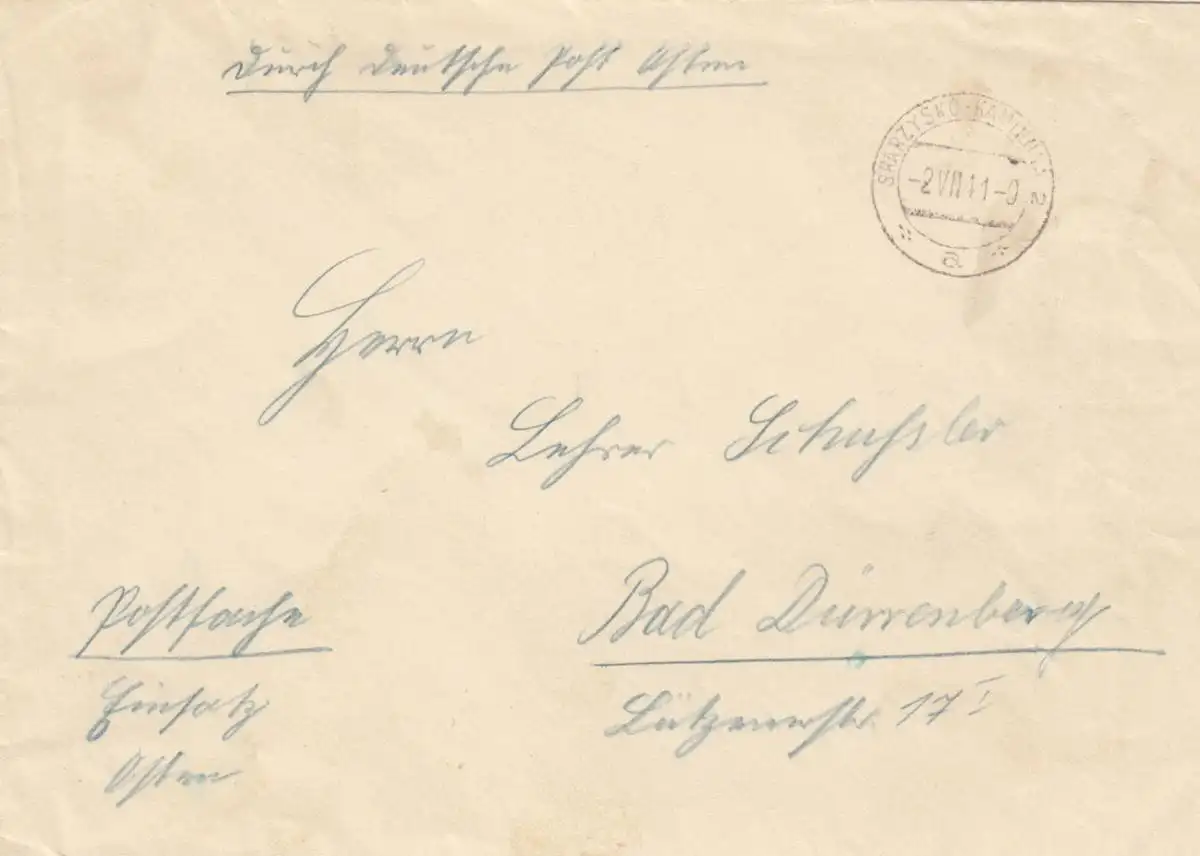 Durch Deutsche Post Osten
SKARZYSKO-KAMIENNA 2
-2VII41-9
a
Herrn
Lehrer Schußler
Bad Dürrenberg
Lützenerstr. 17 I
Postsache
Einsatz
Osten